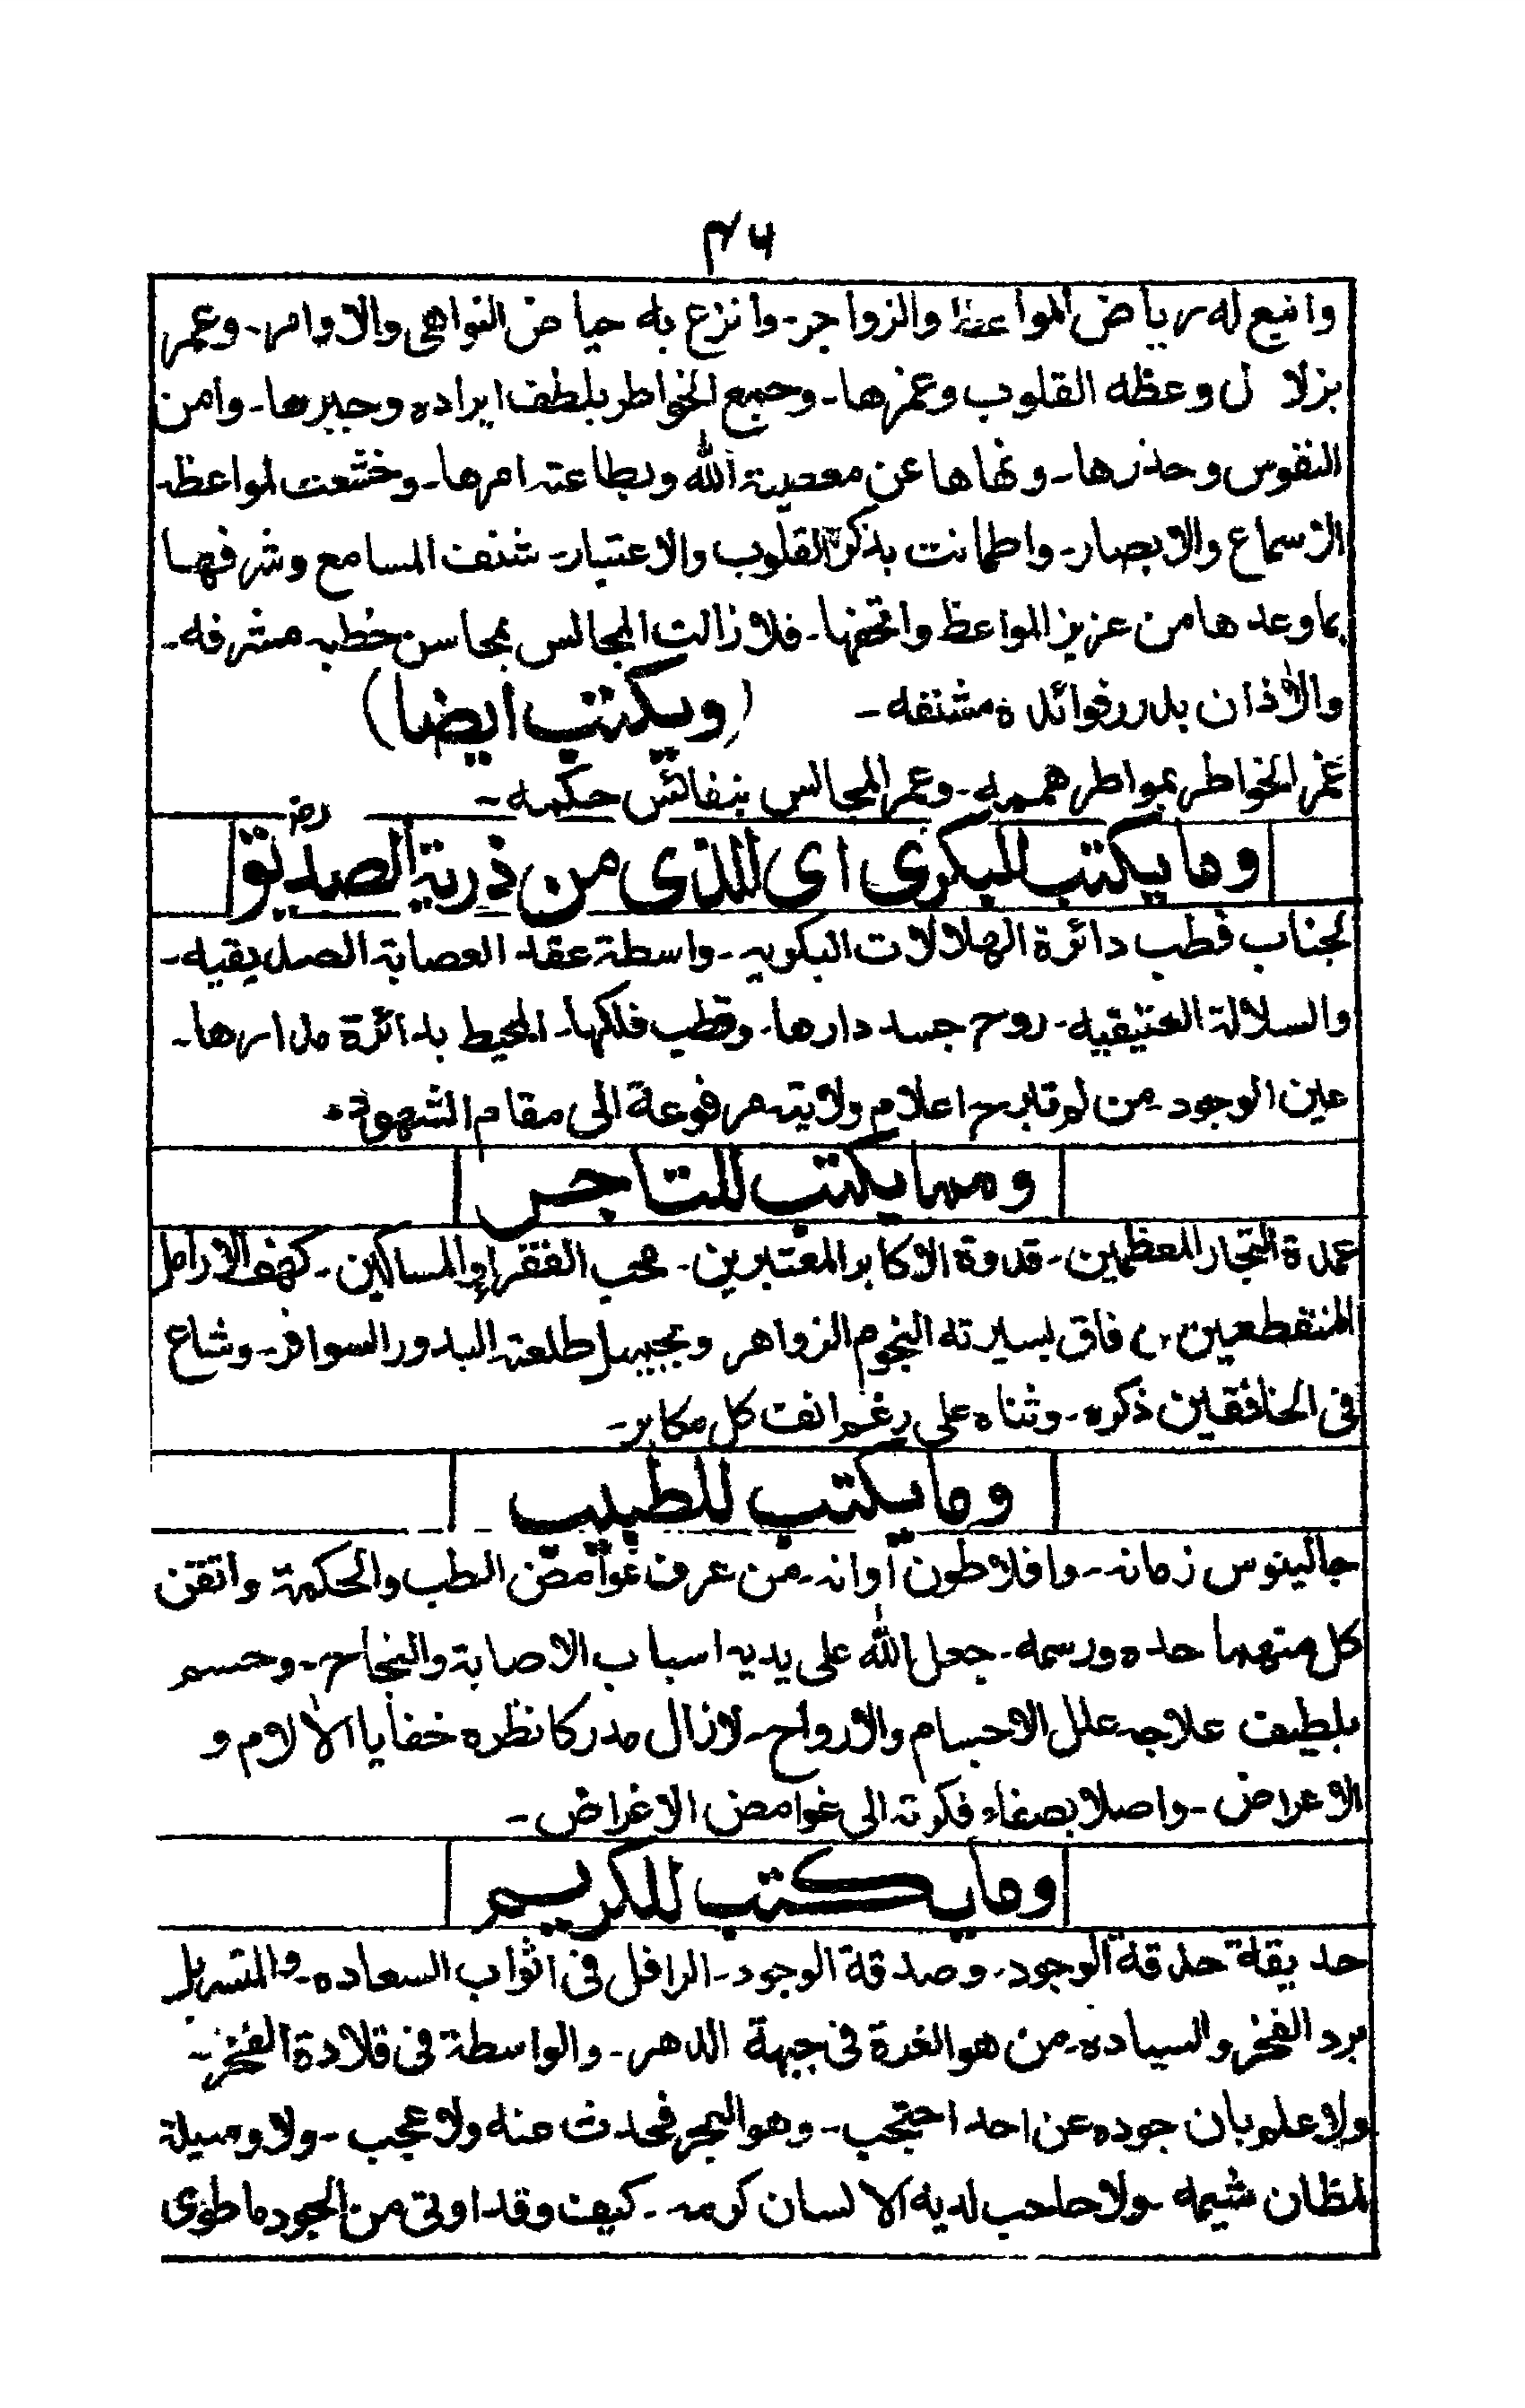 ۴۶
واينع له رياض المواعظ والزواجر۔ وانزع به حياض النواهى والاوامر۔ وعمر
بزلال وعظه القلوب وغمرها۔ وجمع الخواطر بلطف ايراده وجبرها۔ وامن
النفوس وحذرها۔ ونهاها عن معصية الله وبطاعته امرها۔ وخشعت لمواعظه
الاسماع والابصار۔ واطمانت بذكره القلوب والاعتبار۔ شنف المسامع وشرفها
بماوعدها من عزيز المواعظ واتحفها۔ فلا زالت المجالس بمحاسن خطبه مشرفه۔
والآذان بدرر فوائده مشنفه۔ (ويكتب ايضا)
غمر الخواطر بمواطر هممه۔ وعمر المجالس بنفائس حكمه۔
وما يكتب للبكرى اى للذى من ذرية الصديق رض
لجناب قطب دائرة الهلالات البكريه۔ واسطة عقد العصابة الصديقيه۔
والسلالة العتيقيه۔ روح جسد دارها۔ وقطب فلكها۔ المحيط بدائرة مدارها۔
عين الوجود۔ من لم تبرح اعلام ولايته مرفوعة الى مقام الشهود۔
ومما يكتب للتاجر
عمدة التجار المعظمين۔ قدوة الاكابر المعتبرين۔ محب الفقراء والمساكين۔ كهف الارامل
المنقطعين، من فاق بسيرته النجوم الزواهر وبجميل طلعته البدور السوافر۔ وشاع
فى الخافقين ذكره۔ وثناه على رغم انف كل مكابر۔
وما يكتب للطبيب
جالينوس زمانه۔ وافلاطون اوانه۔ من عرف غوامض الطب والحكمة واتقن
كل منهما حده ورسمه۔ جعل الله على يديه اسباب الاصابة والنجاح۔ وحسم
بلطيف علاجه علل الاجسام والارواح۔ لازال مدركا نظره خفايا الآلام و
الاعراض۔ واصلا بصفاء فكرته الى غوامض الاغراض۔
وما يكتب للكريم
حديقة حدقة الوجود۔ وصدقة الوجود۔ الرافل فى اثواب السعاده۔ والمتسربل
برد الفخر والسياده۔ من هو الغرة فى جبهة الدهر۔ والواسطة فى قلادة الفخر۔
ولا علم بان جوده عن احد احتجب۔ وهو البحر فحدث عنه ولا عجب۔ ولا وسيلة
لمظان شيمه۔ ولا حاجب لديه الا لسان كرمه۔ كيف وقد اوتى من الجود ما طوى